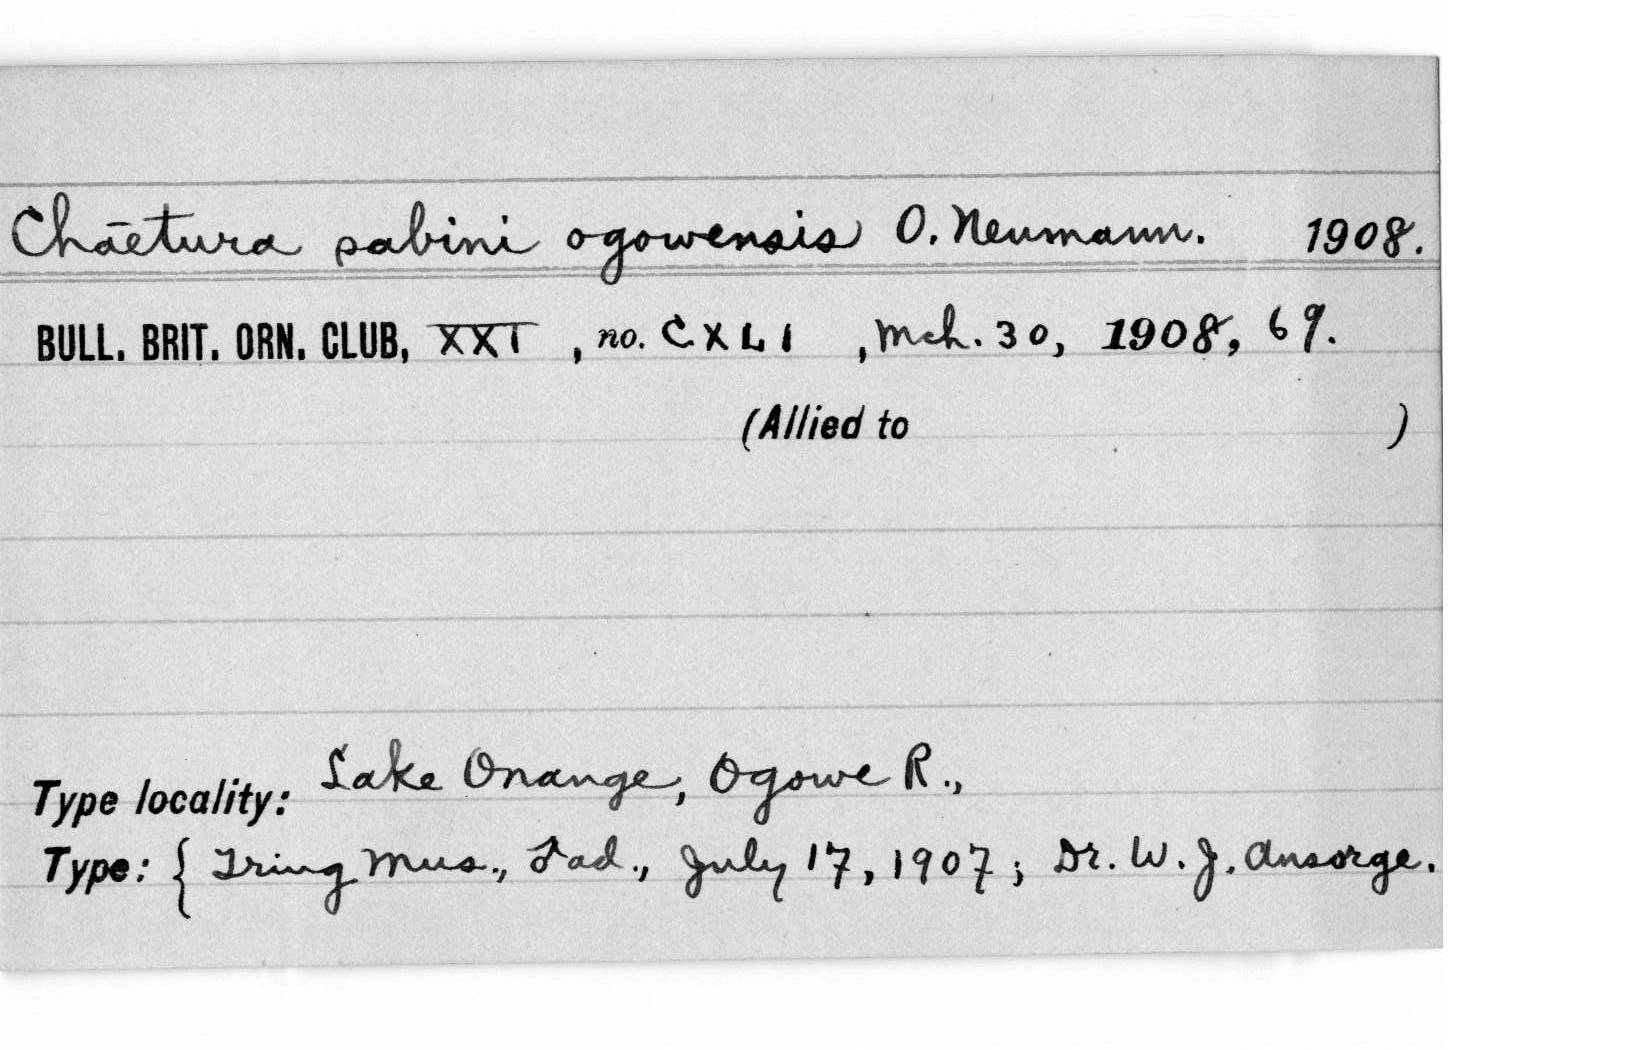 Chaetura sabini ogowensis O. Neumann. 1908.
BULL. BRIT. ORN. CLUB, XXI, no. CXLI, Mch. 30, 1908, 69.
(Allied to )
Type locality: Lake Onange, Ogowe R.,
Type: { Tring Mus., ♂ ad., July 17, 1907; Dr. W. J. Ansorge.